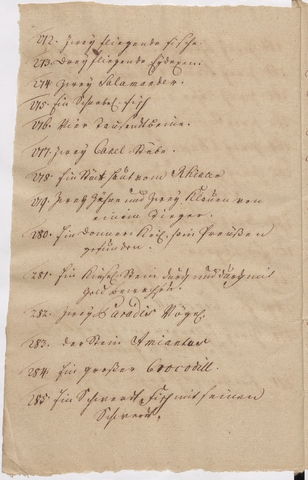 272. Zwey fliegende Fische.
273. Drey fliegende Eydexen.
274. Zwey Salamander.
275. Ein Schnabel-Fisch
276. Vier Tausendbeine.
277. Zwey
278. Ein Stück Haut vom Rhinoc
279. Zwey Zähne und Zwey Klauen von
einem Tieger.
280. Ein Donner Keil, so in Preußen
gefunden.
281. Ein Stein durch und durch mit
Gold
282. Zwey Paradis Vögel.
283. Der Stein Amiantus
284. Ein großer Crocodill.
285. Ein Schwerdt Fisch mit seinen
Schwerdt.